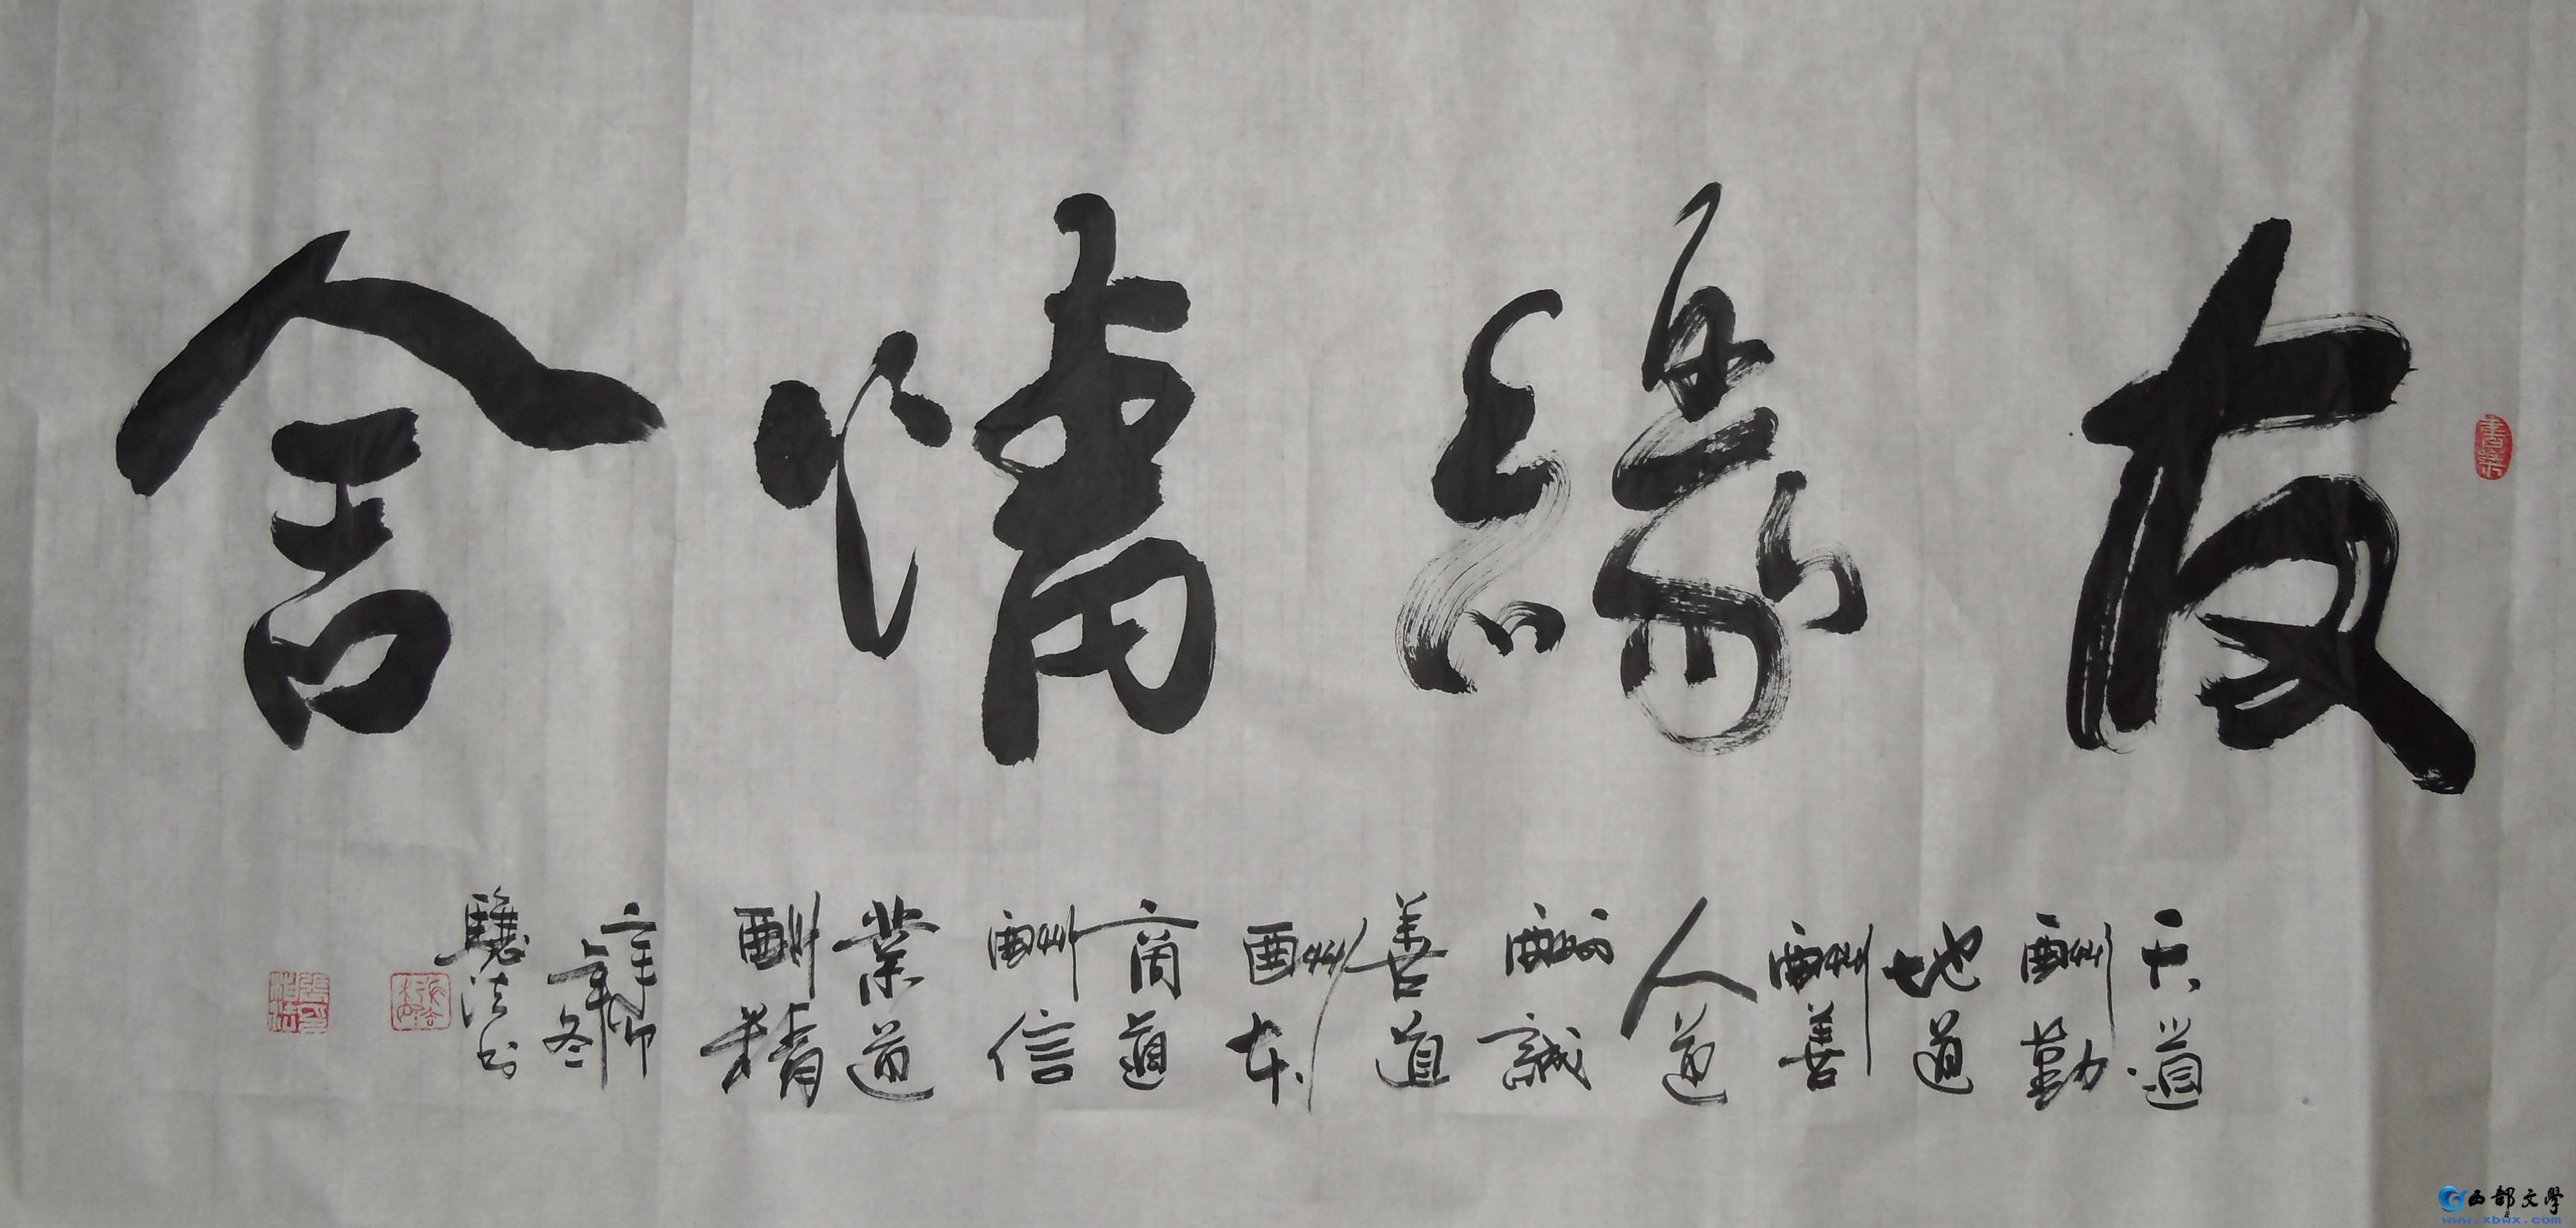 友緣情舍
天道
酬勤
地道
酬善
人道
酬誠
善道
酬本
商道
酬信
業道
酬精
辛卯
年冬
驄法书
西部文學
www.xbwx.com